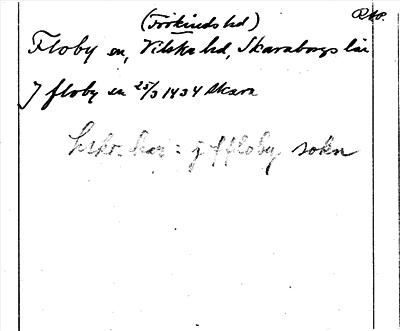 (Frökinds hd) Rko.
Floby sn, Vilske hd, Skaraborgs län
J floby sn 25/3 1434 Skara
har: j ffloby sokn